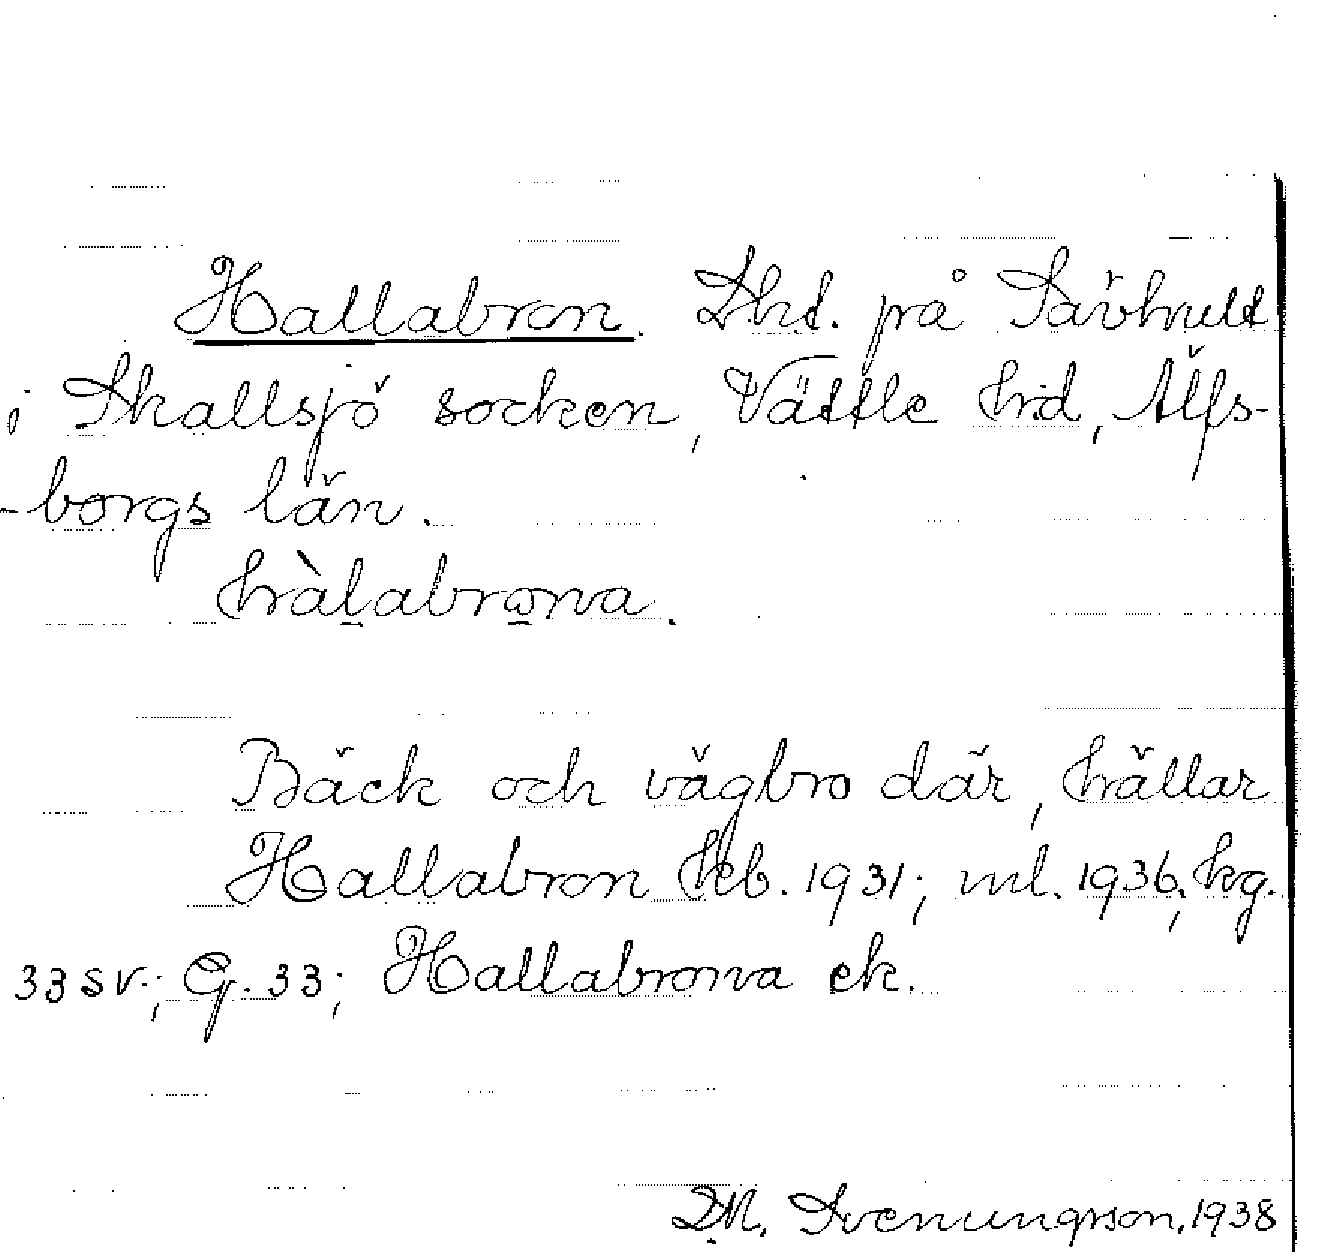 Hallabron. Lhd. på Sävhult
i Skallsjö socken, Vättle hd, Älfs-
-borgs län.
hàlabrona.
Bäck och vägbro där, hällar
Hallabron heb. 1931; ml. 1936; kg.
33 sv.; G. 33; Hallabrona ek.
D.M. Svenungsson, 1938